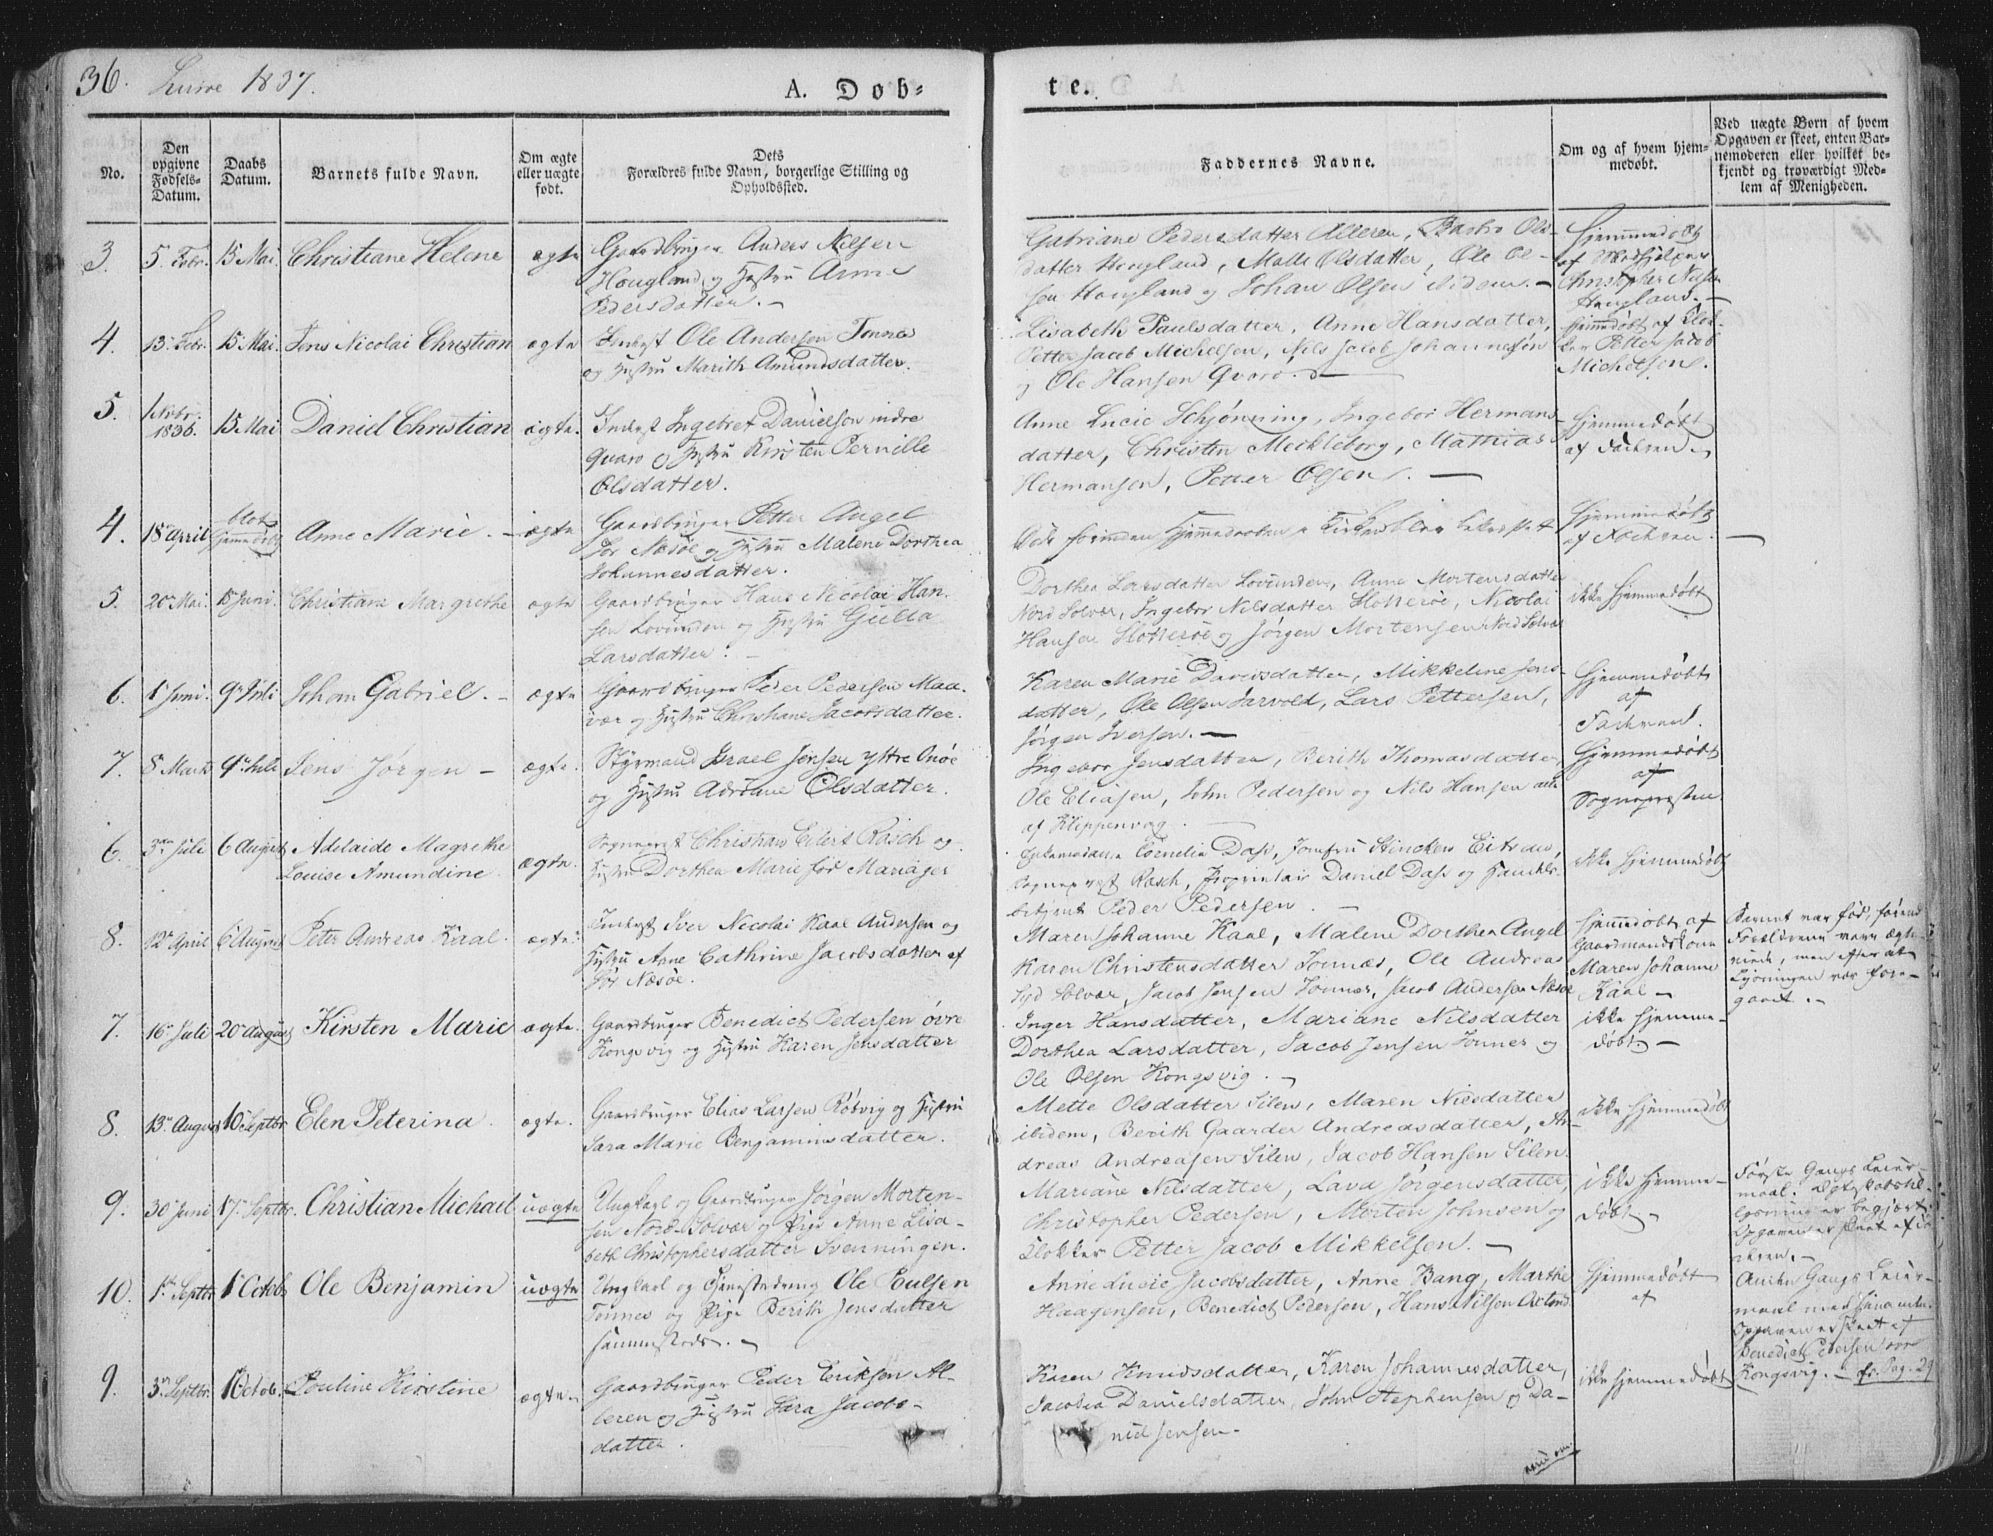 36. Lurøe 1837.
A. Dob=
te.
No.
Den opgivne Fødsels-Datum.
Daabs Datum.
Barnets fulde Navn.
Om ægte eller uægte født.
Dets Forældres fulde Navn, borgerlige Stilling og Opholdssted.
Faddernes Navne.
Om og af hvem hjemmedøbt.
Ved uægte Børn af hvem Opgaven er skeet, enten Barnemoderen eller hvilket bekjendt og troværdigt Medlem af Menigheden.
3. 5. Febr. 15 Mai. Christiane Helene ægte
Gaardbruger Anders Nilsen
Hougland og Hustru Anne
Pedersdatter. -
Gabriane Pedersdatter Alleren, Barbro Ols-
datter Hougland, Malle Olsdatter, Ole Ol-
sen Hougland og Johan Olsen ibidem. -
Hjemmedøbt
af
Christopher Nilsen
Hougland. -
4. 13. Febr. 15 Mai. Jens Nicolai Christian ægte
Inderst Ole Andersen Tonnes
og Hustru Marith Amundsdatter.
Lisabeth Paulsdatter, Anne Hansdatter,
Petter Jacob Michelsen, Nils Jacob Johannesen
og Ole Hansen Qvarø.
Hjemmedøbt af Klok-
ker Petter Jacob
Michelsen.
5. 1 Novbr. 1836. 15 Mai Daniel Christian ægte.
Inderst Ingebret Danielsen indre
Qvarø og Hustru Kirsten Pernille
Olsdatter.
Anne Lucie Schjønning, Ingebor Hermans-
datter, Christen Mechleborg, Mathias
Hermansen, Petter Olsen. -
Hjemmedøbt
af Faderen. -
4. 18 April blot hjemmedøbt Anne Marie. - ægte
Gaardbruger Petter Angel
Sør Næsøe og Hustru Malene Dorthea
Johannesdatter.
Hjemmedøbt
af Faderen. -
5. 20 Mai. 18 Juni. Christiane Margrethe ægte
Gaardbruger Hans Nicolai Han-
sen Lovunden og Hustru Gulla
Larsdatter. -
Dorthea Larsdatter Lovunden, Anne Mortensdatter
Nord Solvær, Ingebor Nilsdatter Slotterøe, Nicolai
Hansen Slotterøe og Jørgen Mortensen Nord Solvær
ikke hjemmedøbt
6. 1 Juni. 9 Juli Johan Gabriel. - ægte
Gaardbruger Peder Pedersen Maa-
vær og Hustru Christiane Jacobsdatter.
Karen Marie Davidsdatter, Mikkeline Jens-
datter, Ole Olsen Sarvold, Lars Pettersen,
Jørgen Iversen. -
Hjemmedøbt
af
Faderen.
7. 8 Marts 9 Juli Jens Jørgen - ægte.
Styrmand Israel Jensen Yttre Onøe
og Hustru Adriane Olsdatter.
Ingebor Jensdatter, Berith Thomasdatter,
Ole Eliasen, John Pedersen og Nils Hansen alle
af Klippenvog
Hjemmedøbt
af
Sognepræsten
6. 3 Juli 6 August Adelaide Magrethe
Louise Amundine ægte.
Sognepræst Christian Eilert Rasch og
Hustru Dorthea Marie fød Mariager
Cornelia Dass, Jomfru Stincken Eitran,
Sognepræst Rasch, Proprietair Daniel Dass og Handels-
betjent Peder Pedersen. -
ikke hjemmedøbt
8. 12 April 6 August Peter Andreas Kaal. ægte.
Inderst Iver Nicolai Kaal Andersen og
Hustru Anne Cathrine Jacobsdatter af
Sør Næsøe.
Maren Johanne Kaal, Malene Dorthea Angel
Karen Christensdatter Tonnes, Ole Andreas
Syd Solvær, Jacob Jensen Tonnes, Jacob Andersen Næsøe
Hjemmedøbt af
Gaardmandskone
Maren Johanne
Kaal -
Barnet var fød, førend
Forældrene vare ægte-
viede, men efter at
Lysningen var fore-
gaaet. -
7. 16 Juli 20 August Kirsten Marie ægte.
Gaardbruger Benedict Pedersen øvre
Kongsvig og Hustru Karen Jensdatter
Inger Hansdatter, Mariane Nilsdatter
Dorthea Larsdatter, Jacob Jensen Tonnes og
Ole Olsen Kongsvig. -
ikke hjemme-
døbt. -
8. 13 August 10 Septbr Elen Peterina. ægte.
Gaardbruger Elias Larsen Rødvig og Hustru
Sara Marie Benjaminsdatter.
Mette Olsdatter Silen, Maren Nilsdatter
ibidem, Berith Gaarder Andreasdatter, An-
dreas Andreasen Silen, Jacob Hansen Silen.
ikke hjemmedøbt
9. 30 Juni 17 Septbr. Christian Michael uægte
Ungkarl og Gaardbruger Jørgen Morten-
sen Nord-Solvær og Pige Anne Lisa-
beth Christophersdatter Svenningen.
Mariane Nilsdatter, Lava Jørgensdatter,
Christopher Pedersen, Morten Johnsen og
Klokker Petter Jacob Mikkelsen. -
ikke hjemme-
døbt. -
Første Gangs Leier-
maal. Ægteskabs
lysning er begjært.
Opgaven er skeet af
10. 1 Septbr 1 Octob Ole Benjamin uægte
Ungkarl og Tjenestedreng Ole Poulsen
Tonnes og Pige Berith Jensdatter
sammesteds. -
Anne Lucie Jacobsdatter, Anne Bang, Marthe
Haagensen, Benedict Pedersen, Hans Nilsen
Hjemmedøbt
af
Anden Gangs Leier-
maal med
Opgaven er skeet af
Benedict Pedersen øvre
Kongsvig. - fr. Pag. 29
9. 3 Septbr. 1 Octob. Pouline Kirstine ægte. -
Gaardbruger Peder Eriksen Al-
leren og Hustru Sara Jacobs-
datter.
Karen Knudsdatter, Karen Johannesdatter,
Jacobia Danielsdatter, John Stephensen og Da-
niel Jensen. -
ikke hjemmedøbt